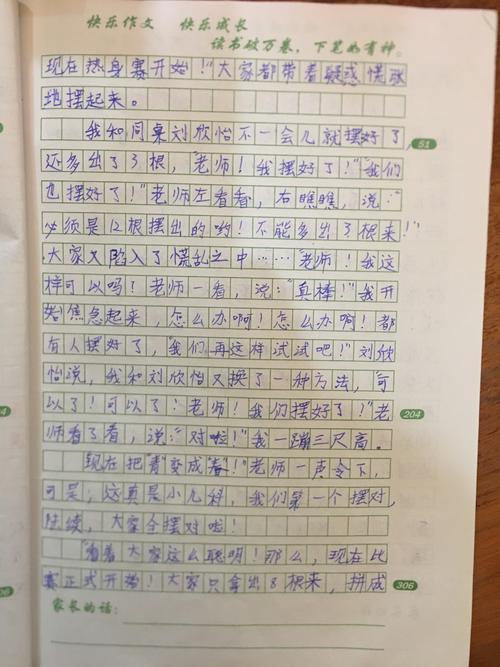 快乐作文 快乐成长
读书破万卷，下笔如有神。
现在热身赛开始！”大家都带着疑惑慌张
地摆起来。
我和同桌刘欣怡不一会儿就摆好了，
51
还多出了3根，“老师！我摆好了！”“我们
也摆好了！”老师左看看，右瞧瞧，说：“
必须是12根摆出的哟！不能多出3根来！”
大家又陷入了慌乱之中……“老师！我这
样可以吗？老师一看，说：“真棒！”我开
始焦急起来，怎么办啊！怎么办啊！都
有人摆好了，“我们再这样试试吧！”刘欣
怡说，我和刘欣怡又换了一种方法，“可
以了！可以了！老师！我们摆好了！”老
204
师看了看，说：“对啦！”我一蹦三尺高。
现在把“青”变成“春”！”老师一声令下，
可是，这真是小儿科，我们第一个摆对，
陆续，大家全摆对啦！
“看着大家这么聪明！那么，现在比
赛正式开始！大家只拿出8根来，拼成
306
家长的话：